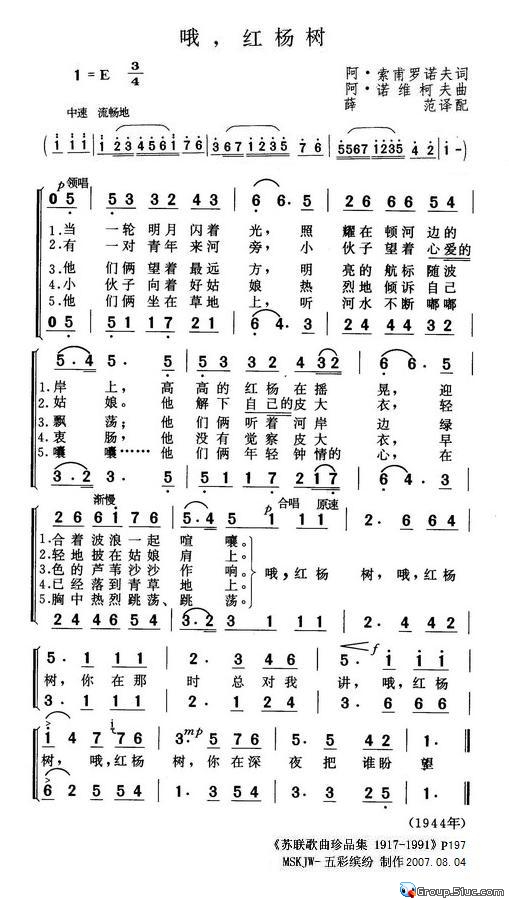 哦，红杨树
1=E 3/4
阿·索甫罗诺夫词
阿·诺维柯夫曲
薛 范译配
中速 流畅地
(1 1 1 | 1 2 3 4 5 6 1 | 7 6 5 | 5 6 7 1 2 3 5 | 1 7 6 | 5 5 6 7 1 2 3 5 | 4 2 | 1 -)
p 领唱
0 5 | 5 3 3 2 4 3 | 6 6. 5 | 2 6 6 6 5 4
1.当 一轮 明月 闪着 光，照 耀在 顿河 边的
2.有 一对 青年 来河 旁，小 伙子 望着 心爱的
3.他 们俩 望着 最远 方，明 亮的 航标 随波
4.小 伙子 向着 好姑 娘 热 烈地 倾诉 自己
5.他 们俩 坐在 草地 上，听 河水 不断 嘟嘟
0 5 | 5 1 1 7 2 1 | 6 4. 3 | 2 4 4 4 3 2
5. 4 5. 5 | 5 3 3 2 4 3 2 | 6 6. 5
1.岸 上，高 高的 红杨 在摇 晃，迎
2.姑 娘。他 解下 自己的 皮大 衣，轻
3.飘 荡；他 们俩 听着 河岸 边 绿
4.衷 肠，他 没有 觉察 皮大 衣，早
5.嚷 嚷……他 们俩 年轻 钟情的 心，在
3. 2 3. 5 | 5 1 1 7 2 1 7 | 6 4. 3
渐慢 p 合唱 原速
2 6 6 1 7 6 | 5. 4 5 | 1 1 1 | 2. 6 6 4
1.合着 波浪 一起 喧 嚷。
2.轻地 披在 姑娘 肩 上。
3.色的 芦苇 沙沙 作 响。
4.已经 落到 青草 地 上。
5.胸中 热烈 跳荡、跳 荡。
哦，红杨 树，哦，红杨
2 4 4 6 5 4 | 3. 2 3 | 1 1 1 | 2. 4 4 2
f
5. 1 1 1 | 2. 3 4 6 | 5. 1 1 1
树，你 在那 时 总 对我 讲，哦，红杨
3. 1 1 1 | 2. 1 2 4 | 3. 1 1 1
mp
1 7 7 6 | 3. 5 7 6 | 5. 5 4 2 | 1.
树，哦，红杨 树，你 在深 夜 把 谁盼 望
6 2 5 5 4 | 1. 2 5 4 | 3. 3 2 7 | 1.
(1944年)
《苏联歌曲珍品集 1917-1991》P197
MSKJW-五彩缤纷 制作2007.08.04
Group.51uc.com